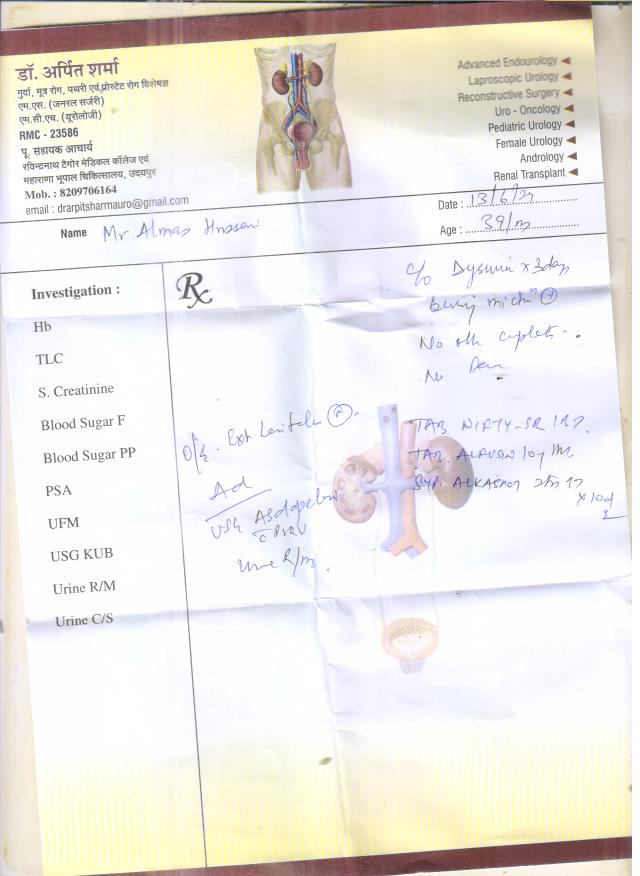 डॉ. अर्पित शर्मा
गुर्दा, मूत्र रोग, पथरी एवं प्रोस्टेट रोग विशेषज्ञ
एम.एस. (जनरल सर्जरी)
एम.सी.एच. (यूरोलोजी)
RMC - 23586
पू. सहायक आचार्य
रविन्द्रनाथ टैगोर मेडिकल कॉलेज एवं
महाराणा भूपाल चिकित्सालय, उदयपुर
Mob. : 8209706164
email : drarpitsharmauro@gmail.com
Advanced Endourology
Laproscopic Urology
Reconstructive Surgery
Uro - Oncology
Pediatric Urology
Female Urology
Andrology
Renal Transplant
Date : 13/6/24
Name Mr Almas Hussain
Age : 39/m
Investigation :
Hb
TLC
S. Creatinine
Blood Sugar F
Blood Sugar PP
PSA
UFM
USG KUB
Urine R/M
Urine C/S
Rx
c/o Dysuria x 3 days
No
No
O/E. Ext
Ad
USG
c PVRU
Urine R/m.
TAB. NIFTY-SR
TAB. 10mg
SYP.
x 10d